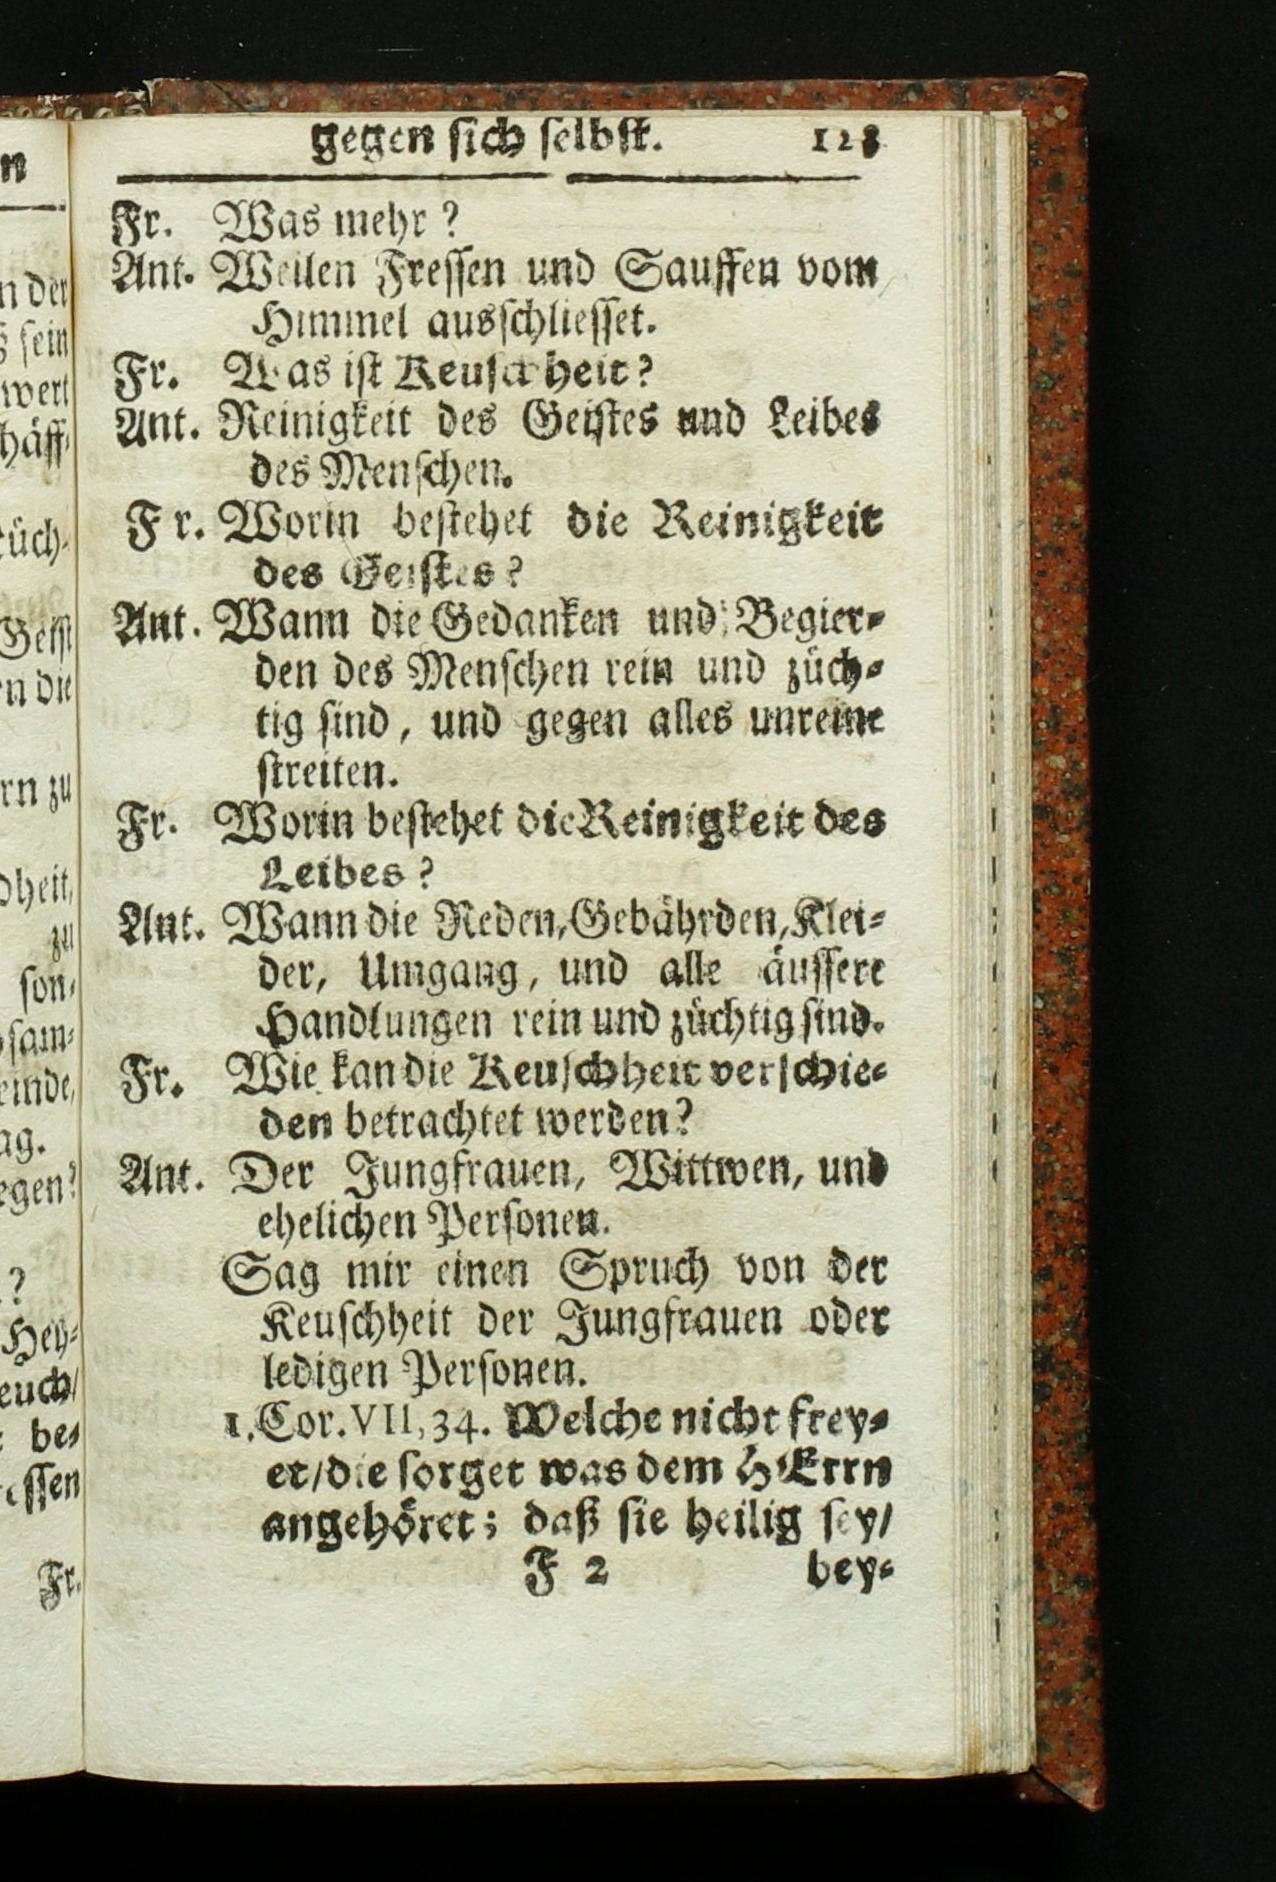 gegen ſich ſelbſt. 123
Fr. Was mehr?
Ant. Weilen Freſſen und Sauffen vom
Himmel ausſchlieſſet.
Fr. Was iſt Keuſchheit?
Ant. Reinigkeit des Geiſtes und Leibes
des Menſchen.
Fr. Worin beſtehet die Reinigkeit
des Geiſtes?
Ant. Wann die Gedanken und Begier-
den des Menſchen rein und züch-
tig ſind, und gegen alles unreine
ſtreiten.
Fr. Worin beſtehet die Reinigkeit des
Leibes?
Ant. Wann die Reden, Gebährden, Klei-
der, Umgang, und alle äuſſere
Handlungen rein und züchtig ſind.
Fr. Wie kan die Keuſchheit verſchie-
den betrachtet werden?
Ant. Der Jungfrauen, Wittwen, und
ehelichen Perſonen.
Sag mir einen Spruch von der
Keuſchheit der Jungfrauen oder
ledigen Perſonen.
1. Cor. VII, 34. Welche nicht frey-
et/ die ſorget was dem HErrn
angehöret; daß ſie heilig ſey/
F 2 bey-